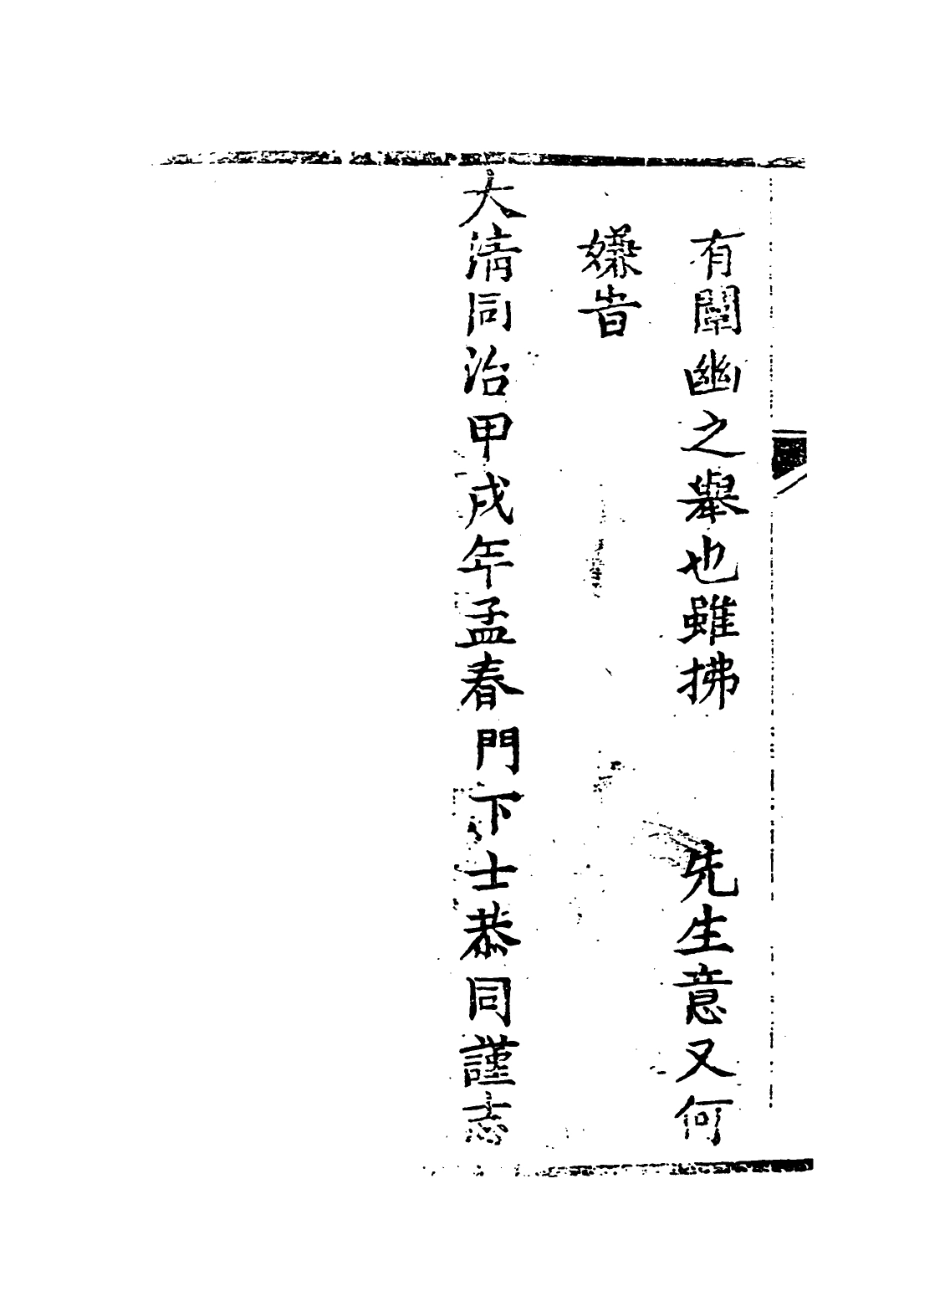 有闡幽之舉也雖拂　先生意又何
嫌旹
大清同治甲戌年孟春門下士恭同謹志